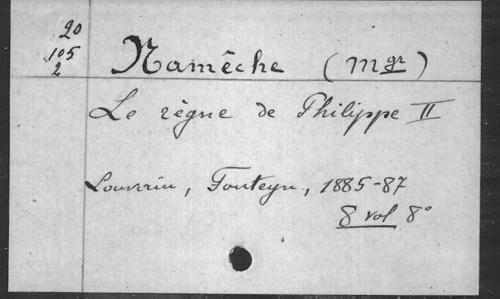 20
105
2
Namêche (Mgr)
Le règne de Philippe II
Louvain, Fonteyn, 1885-87
8 vol 8°